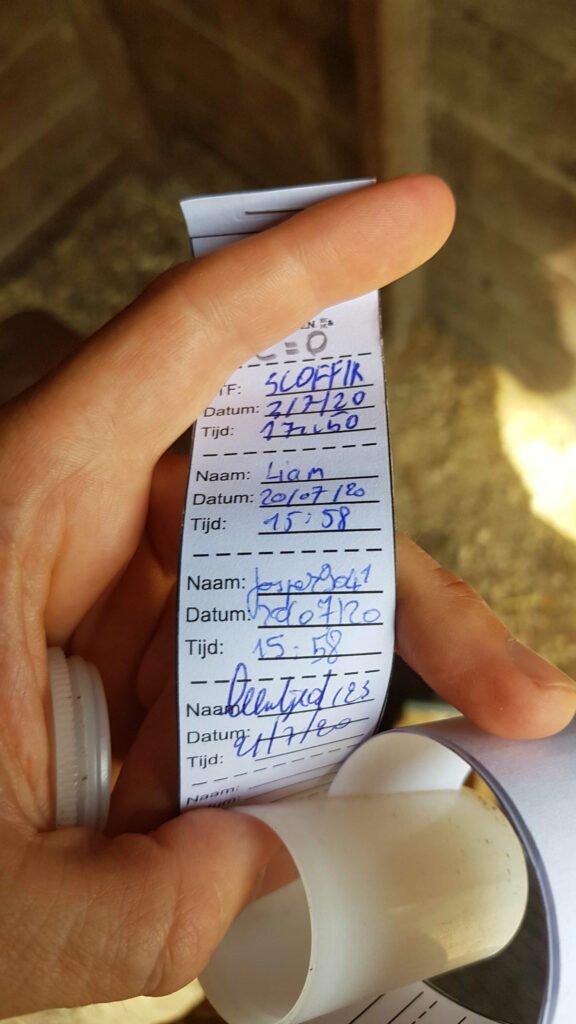 C=0
TF: SCOFFIR
Datum: 2/7/20
Tijd: 17:50
Naam: Liam
Datum: 20/07/20
Tijd: 15:58
Naam:
Datum: 20/07/20
Tijd: 15:58
Naam:
Datum: 21/7/20
Tijd:
Naam: